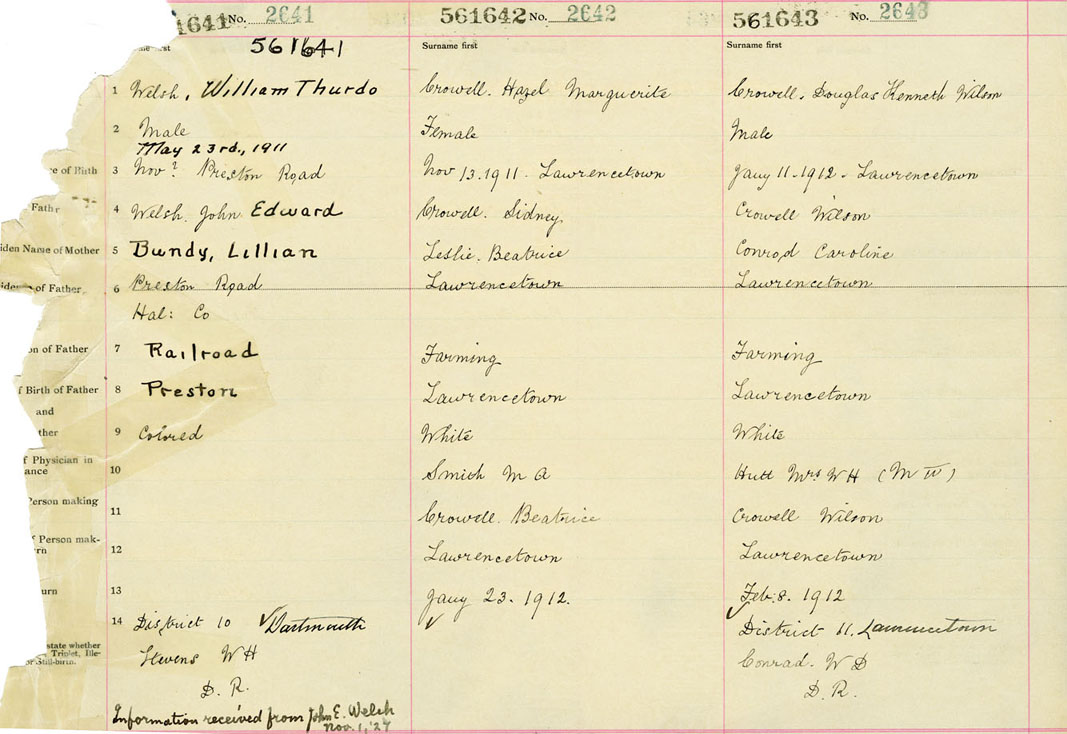 1641 No. 2641
561642 No. 2642
561643 No. 2643
me first 561641
Surname first
Surname first
1 Welsh, William Thurdo
Crowell. Hazel Marguerite
Crowell. Douglas Kenneth Wilson
2 Male
Female
Male
May 23rd., 1911
ce of Birth 3 Nov? Preston Road
Nov 13. 1911. Lawrencetown
Jany 11. 1912. Lawrencetown
Fath r 4 Welsh. John Edward
Crowell. Sidney
Crowell Wilson
iden Name of Mother 5 Bundy, Lillian
Leslie. Beatrice
Conrod Caroline
of Father 6 Preston Road
Lawrencetown
Lawrencetown
Hal: Co
on of Father 7 Railroad
Farming
Farming
f Birth of Father 8 Preston
Lawrencetown
Lawrencetown
and
ther 9 Colored
White
White
f Physician in
ance 10
Smith M A
Hutt Mrs W H (M W)
Person making
11
Crowell. Beatrice
Crowell Wilson
f Person mak-
rn 12
Lawrencetown
Lawrencetown
urn 13
Jany 23. 1912.
Feb. 8. 1912
14 District 10 Dartmouth
District 11. Lawrencetown
state whether
Triplet, Ille-
or Still-birth.
Stevens W H
Conrad. W D
D. R.
D. R.
Information received from John E. Welch
Nov. 1, '27